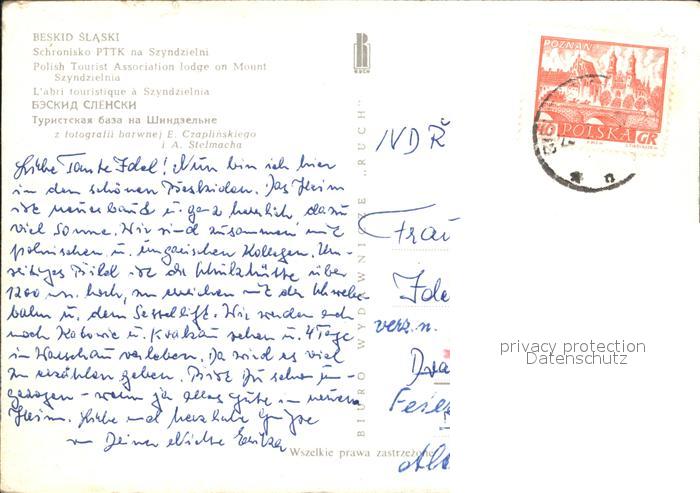 BESKID ŚLĄSKI
Schronisko PTTK na Szyndzielni
Polish Tourist Association lodge on Mount
Szyndzielnia
L'abri touristique à Szyndzielnia
БЭСКИД СЛЕНСКИ
Туристская база на Шиндзельне
z fotografii barwnej E. Czaplińskiego
i A. Stelmacha
RUCH
BIURO WYDAWNICZE „RUCH"
POZNAŃ
POLSKA
GR
Liebe Tante Idel! Nun bin ich hier
in den schönen Beskiden. Das Heim
ist neuerbaut u. ganz herrlich dazu
viel Sonne. Wir sind zusammen mit
polnischen u. ungarischen Kollegen. Um-
seitiges Bild ist die Schutzhütte über
1200 m hoch, zu erreichen mit der Schwebe-
bahn u. dem Sessellift. Wir werden auch
noch Katowic u. Krakau sehen u. 4 Tage
in Warschau verleben. Da wird es viel
zu erzählen geben. Bist Du schon um-
gezogen - wenn ja alles Gute im neuen
Heim. Liebe und herzliche Grüße
von Deiner Nichte Erika
NDR
Frau
Ide
verz. n.
Wszelkie prawa zastrzeżone
privacy protection
Datenschutz